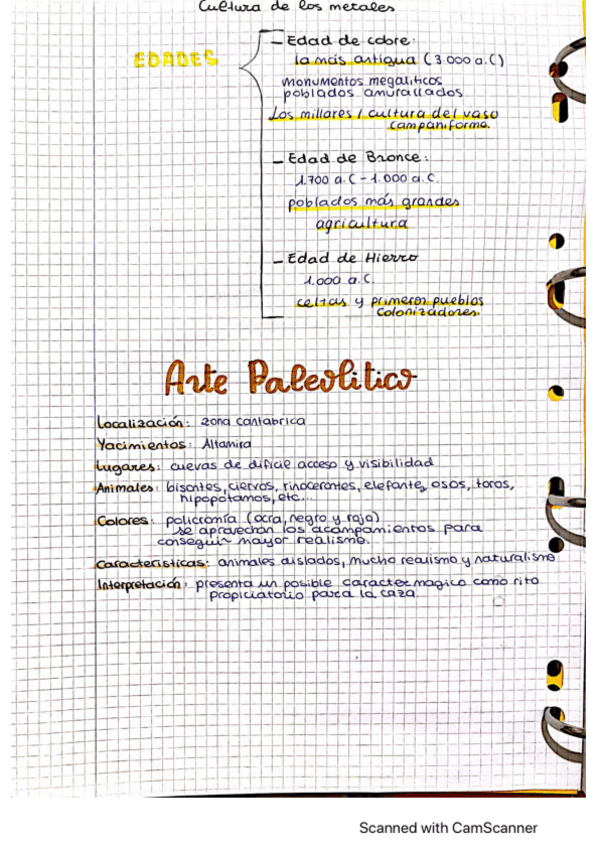 Cultura de los metales
EDADES
- Edad de cobre:
la más antigua (3.000 a.C)
monumentos megalíticos
poblados amurallados
Los millares / cultura del vaso
campaniforme.
- Edad de Bronce:
1.700 a.C - 1.000 a.C.
poblados más grandes
agricultura
- Edad de Hierro
1.000 a.C.
celtas y primeros pueblos
colonizadores.
Arte Paleolítico
Localización: zona cantabrica
Yacimientos: Altamira
Lugares: cuevas de dificil acceso y visibilidad
Animales: bisontes, ciervos, rinocerontes, elefante, osos, toros,
hipopotamos, etc...
Colores: policromía (ocra, negro y rojo)
se aprovechan los acampamientos para
conseguir mayor realismo.
Caracteristicas: animales aislados, mucho realismo y naturalismo
Interpretación: presenta un posible caracter magico como rito
propiciatorio para la caza.
Scanned with CamScanner